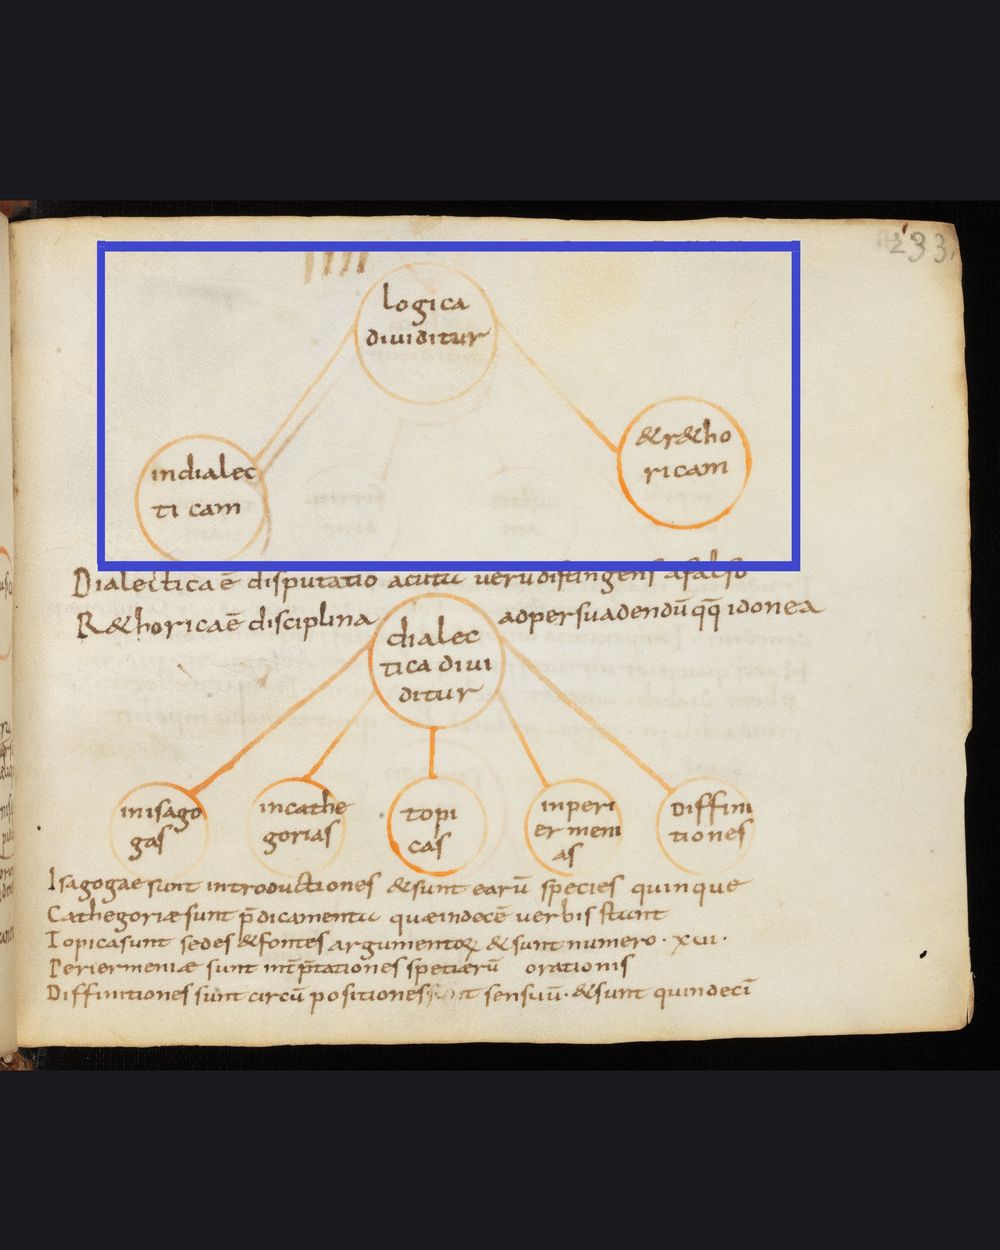 233
logica
diuiditur
indialec
ticam
&r&ho
ricam
Dialectica ē disputatio acuta uerū distingens a falso
R&horica ē disciplina ad persuadendū q̄q̄ idonea
dialec
tica diui
ditur
inisago
gas
incathe
gorias
topi
cas
inperi
ermeni
as
Diffini
tiones
Isagogae sunt introductiones & sunt earū species quinque
Cathegoriae sunt p̄dicamenta quae indecē uerbis stant
Topica sunt sedes & fontes argumentoꝝ & sunt numero · xui ·
Periermeniae sunt int̄p̄tationes specierū orationis
Diffinitiones sunt circū positiones sensuū · & sunt quindecī